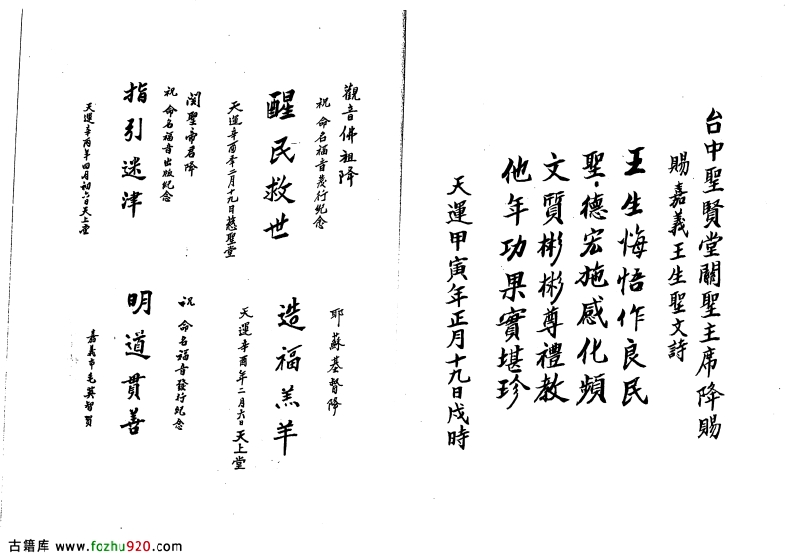 台中聖賢堂關聖主席降賜
賜嘉義王生聖文詩
王生悔悟作良民
聖德宏施感化頻
文質彬彬尊禮教
他年功果實堪珍
天運甲寅年正月十九日戌時
觀音佛祖降
祝命名福音發行紀念
醒民救世
天運辛酉年二月十九日慈聖堂
耶蘇基督降
造福羔羊
天運辛酉年二月六日天上堂
関聖帝君降
祝命名福音出版紀念
指引迷津
天運辛丙年四月初六日天上堂
祝命名福音發行紀念
明道貫善
嘉義市毛英智賀
古籍库 www.fozhu920.com